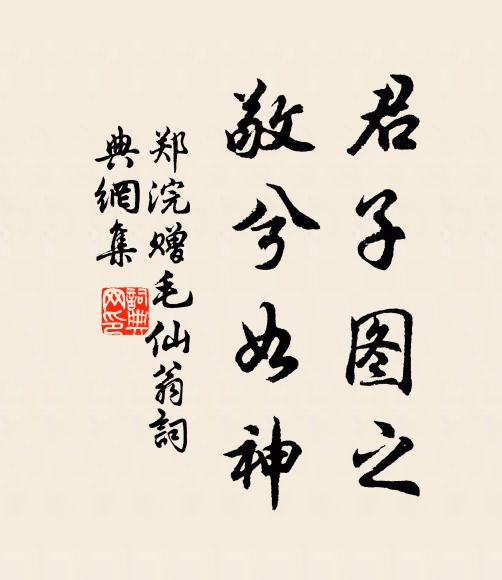 君子图之
敬兮如神
郑浣赠毛仙翁詞
典網集
詞典
网印